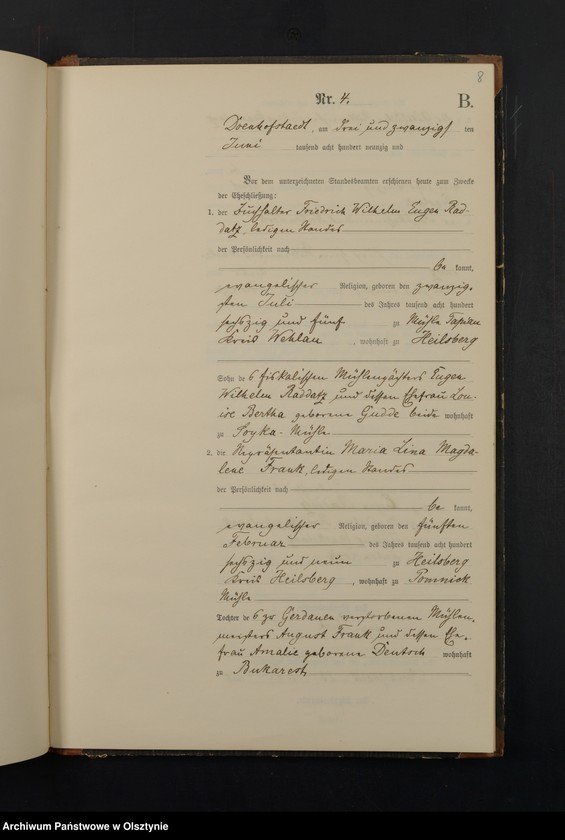 8
Nr. 4.
B.
Doenhofstaedt, am drei und zwanzigsten
Juni tausend acht hundert neunzig und
Vor dem unterzeichneten Standesbeamten erschienen heute zum Zwecke
der Eheschließung:
1. der Buchhalter Friedrich Wilhelm Eugen Rad-
datz, ledigen Standes
der Persönlichkeit nach
be kannt,
evangelischer Religion, geboren den zwanzig-
sten Juli des Jahres tausend acht hundert
sechszig und fünf zu Mühle Tapiau
Kreis Wehlau, wohnhaft zu Heilsberg
Sohn des fiskalischen Mühlenpächters Eugen
Wilhelm Raddatz und dessen Ehefrau Lou-
ise Bertha geborene Gudde beide wohnhaft
zu Soyka-Mühle
2. die Repräsentantin Maria Lina Magda-
lene Frank, ledigen Standes
der Persönlichkeit nach
be kannt,
evangelischer Religion, geboren den fünften
Februar des Jahres tausend acht hundert
sechszig und neun zu Heilsberg
Kreis Heilsberg, wohnhaft zu Pomnick
Mühle
Tochter des zu Gerdauen verstorbenen Mühlen-
meisters August Frank und dessen Ehe-
frau Amalie geborene Deutsch wohnhaft
zu Bukarest
Archiwum Państwowe w Olsztynie